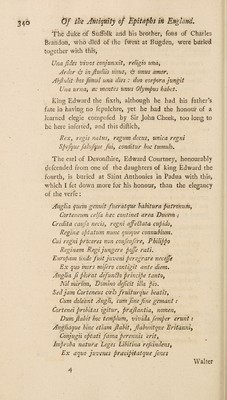 346 Of the Antiquity of Epitaphs in England.
The duke of Suffolk and his brother, sons of Charles
Brandon, who died of the sweat at Bugden, were buried
together with this,
Una fides vivos conjunxit, religio una,
Ardor & in studiis unus, & unus amor.
Abstulit hos simul una dies : duo corpora jungit
Una urna, ac mentes unus Olympus habet.
King Edward the sixth, although he had his father's
fate in having no sepulchre, yet he had the honour of a
learned elegie composed by Sir John Cheek, too long to
be here inserted, and this distich,
Rex, regis natus, regum decus, unica regni
Spesque salusque sui, conditur hoc tumulo.
The earl of Devonshire, Edward Courtney, honourably
descended from one of the daughters of king Edward the
fourth, is buried at Saint Anthonies in Padua with this,
which I set down more for his honour, than the elegancy
of the verse :
Anglia quem genuit fueratque habitura patronum,
Corteneum celsa hæc continet arca Ducem :
Credita causa necis, regni affectata cupido,
Reginæ optatum nunc quoque connubium.
Cui regni proceres non consensêre, Philippo
Reginam Regi jungere posse rati.
Europam unde fuit juveni peregrare necesse
Ex quo mors misero contigit ante diem.
Anglia si plorat defuncto principe tanto,
Nil mirum, Domino deficit illa pio.
Sed jam Corteneus cælo fruiturque beatis,
Cum doleant Angli, cum sine fine gemant :
Corteneï probitas igitur, præstantia, nomen,
Dum stabit hoc templum, vivida semper erunt :
Angliaque hinc etiam stabit, stabuntque Britanni,
Conjugii optati fama perennis erit,
Improba naturæ Leges Libitina rescindens,
Ex æquo juvenes præcipitatque senes
Walter
4